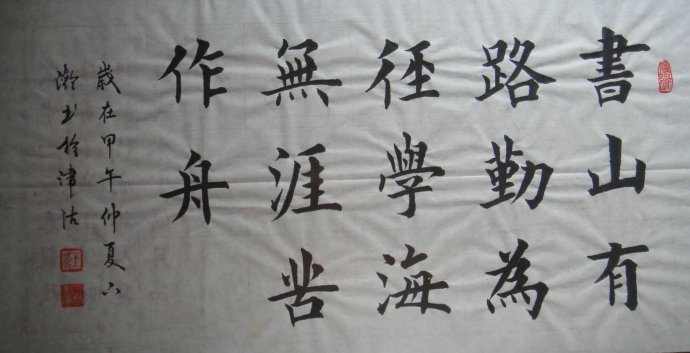 書山有
路勤為
徑學海
無涯苦
作舟
歲在甲午仲夏六
瀚書於津沽